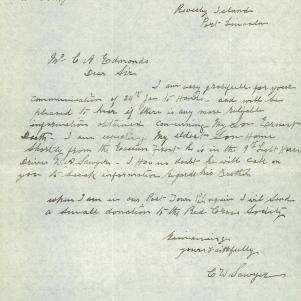 Reevesby Island
Port Lincoln
Mr C A Edmonds
Dear Sir
I am very gratified for your
Communication of 24th Jan to Hand. and will be
pleased to hear if there is any more reliable
information obtained concerning My Son Ernest
Death. I am expecting My eldest Son Home
Shortly from the Eastern Front he is in the 9th Light Horse
Driver Sawyer. I Have no doubt he will call on
you to seek information regards his Brother
when I am in our Port Town again I will Send
a Small donation to the Red Cross Society
Remaining
yours Faithfully
C W Sawyer